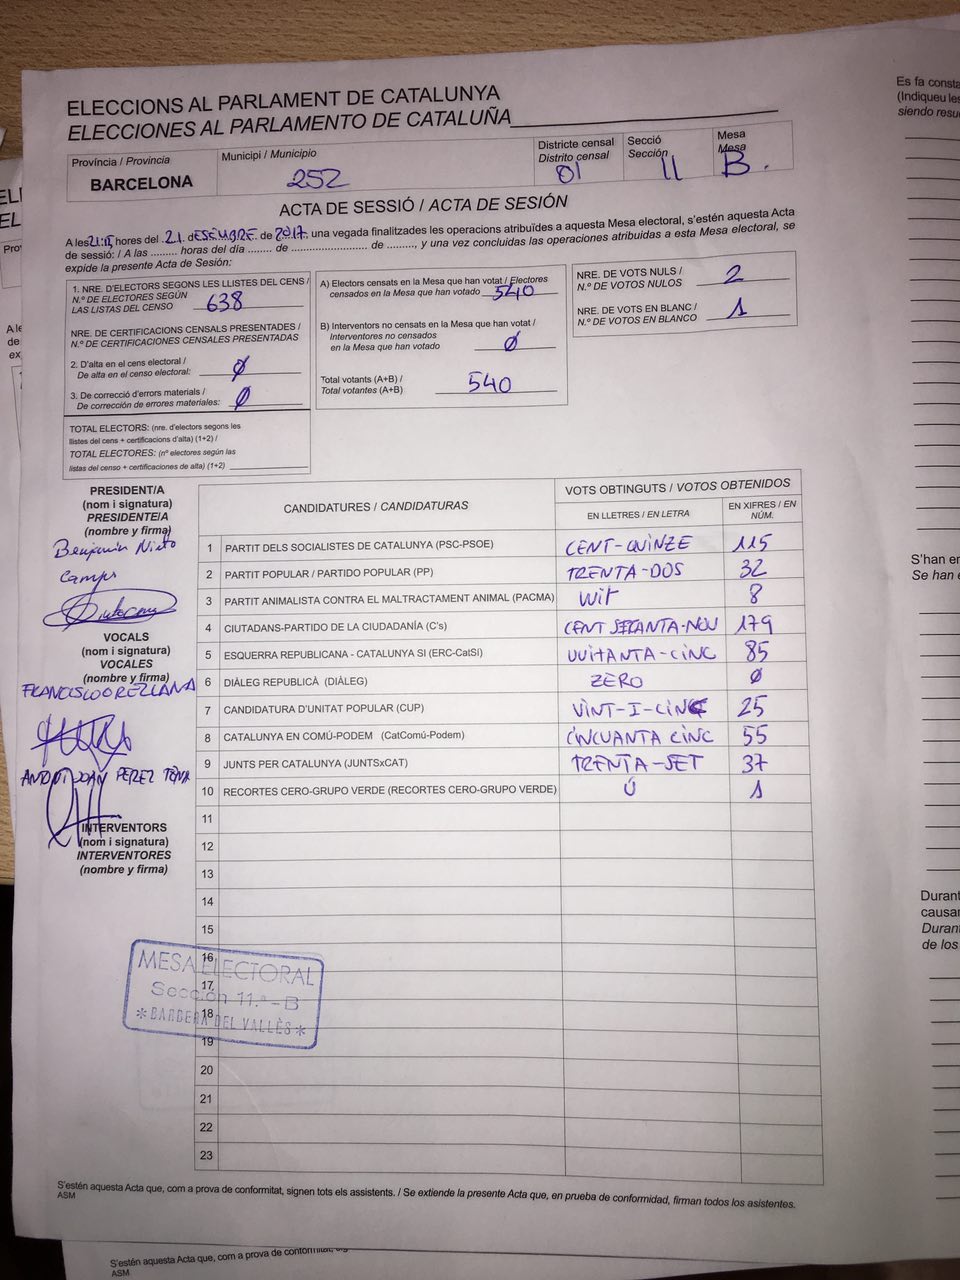 ELECCIONS AL PARLAMENT DE CATALUNYA
ELECCIONES AL PARLAMENTO DE CATALUÑA
Província / Provincia
BARCELONA
Municipi / Municipio
252
Districte censal
Distrito censal
01
Secció
Sección
11
Mesa
Mesa
B.
ACTA DE SESSIÓ / ACTA DE SESIÓN
A les 21:15 hores del 21 dESEMBRE de 2017, una vegada finalitzades les operacions atribuïdes a aquesta Mesa electoral, s'estén aquesta Acta
de sessió: / A las ......... horas del día ........ de ............................ de ..........., y una vez concluidas las operaciones atribuidas a esta Mesa electoral, se
expide la presente Acta de Sesión:
1. NRE. D'ELECTORS SEGONS LES LLISTES DEL CENS /
N.º DE ELECTORES SEGÚN
LAS LISTAS DEL CENSO 638
NRE. DE CERTIFICACIONS CENSALS PRESENTADES /
N.º DE CERTIFICACIONES CENSALES PRESENTADAS
2. D'alta en el cens electoral /
De alta en el censo electoral: Ø
3. De correcció d'errors materials /
De corrección de errores materiales: Ø
TOTAL ELECTORS: (nre. d'electors segons les
llistes del cens + certificacions d'alta) (1+2) /
TOTAL ELECTORES: (nº electores según las
listas del censo + certificaciones de alta) (1+2)
A) Electors censats en la Mesa que han votat / Electores
censados en la Mesa que han votado 540
B) Interventors no censats en la Mesa que han votat /
Interventores no censados
en la Mesa que han votado Ø
Total votants (A+B) /
Total votantes (A+B) 540
NRE. DE VOTS NULS /
N.º DE VOTOS NULOS 2
NRE. DE VOTS EN BLANC /
N.º DE VOTOS EN BLANCO 1
PRESIDENT/A
(nom i signatura)
PRESIDENTE/A
(nombre y firma)
Benjamín Nieto
Campos
VOCALS
(nom i signatura)
VOCALES
(nombre y firma)
FRANCISCO OREZLLANA
JOAN PEREZ
INTERVENTORS
(nom i signatura)
INTERVENTORES
(nombre y firma)
CANDIDATURES / CANDIDATURAS
VOTS OBTINGUTS / VOTOS OBTENIDOS
EN LLETRES / EN LETRA
EN XIFRES / EN NÚM.
1 PARTIT DELS SOCIALISTES DE CATALUNYA (PSC-PSOE) CENT-QUINZE 115
2 PARTIT POPULAR / PARTIDO POPULAR (PP) TRENTA-DOS 32
3 PARTIT ANIMALISTA CONTRA EL MALTRACTAMENT ANIMAL (PACMA) WIT 8
4 CIUTADANS-PARTIDO DE LA CIUDADANÍA (C's) CENT SETANTA-NOU 179
5 ESQUERRA REPUBLICANA - CATALUNYA SI (ERC-CatSI) VUITANTA-CINC 85
6 DIÀLEG REPUBLICÀ (DIÀLEG) ZERO Ø
7 CANDIDATURA D'UNITAT POPULAR (CUP) VINT-I-CINC 25
8 CATALUNYA EN COMÚ-PODEM (CatComú-Podem) CINCUANTA CINC 55
9 JUNTS PER CATALUNYA (JUNTSxCAT) TRENTA-SET 37
10 RECORTES CERO-GRUPO VERDE (RECORTES CERO-GRUPO VERDE) Ú 1
11
12
13
14
15
16
17
18
19
20
21
22
23
MESA ELECTORAL
Sección 11.ª - B
* BARBERÀ DEL VALLÈS *
S'estén aquesta Acta que, com a prova de conformitat, signen tots els assistents. / Se extiende la presente Acta que, en prueba de conformidad, firman todos los asistentes.
ASM
S'estén aquesta Acta que, com a prova de conformitat,
ASM
Es fa consta
(Indiqueu les
siendo resue
S'han en
Se han e
Durant
causar
Duran
de los